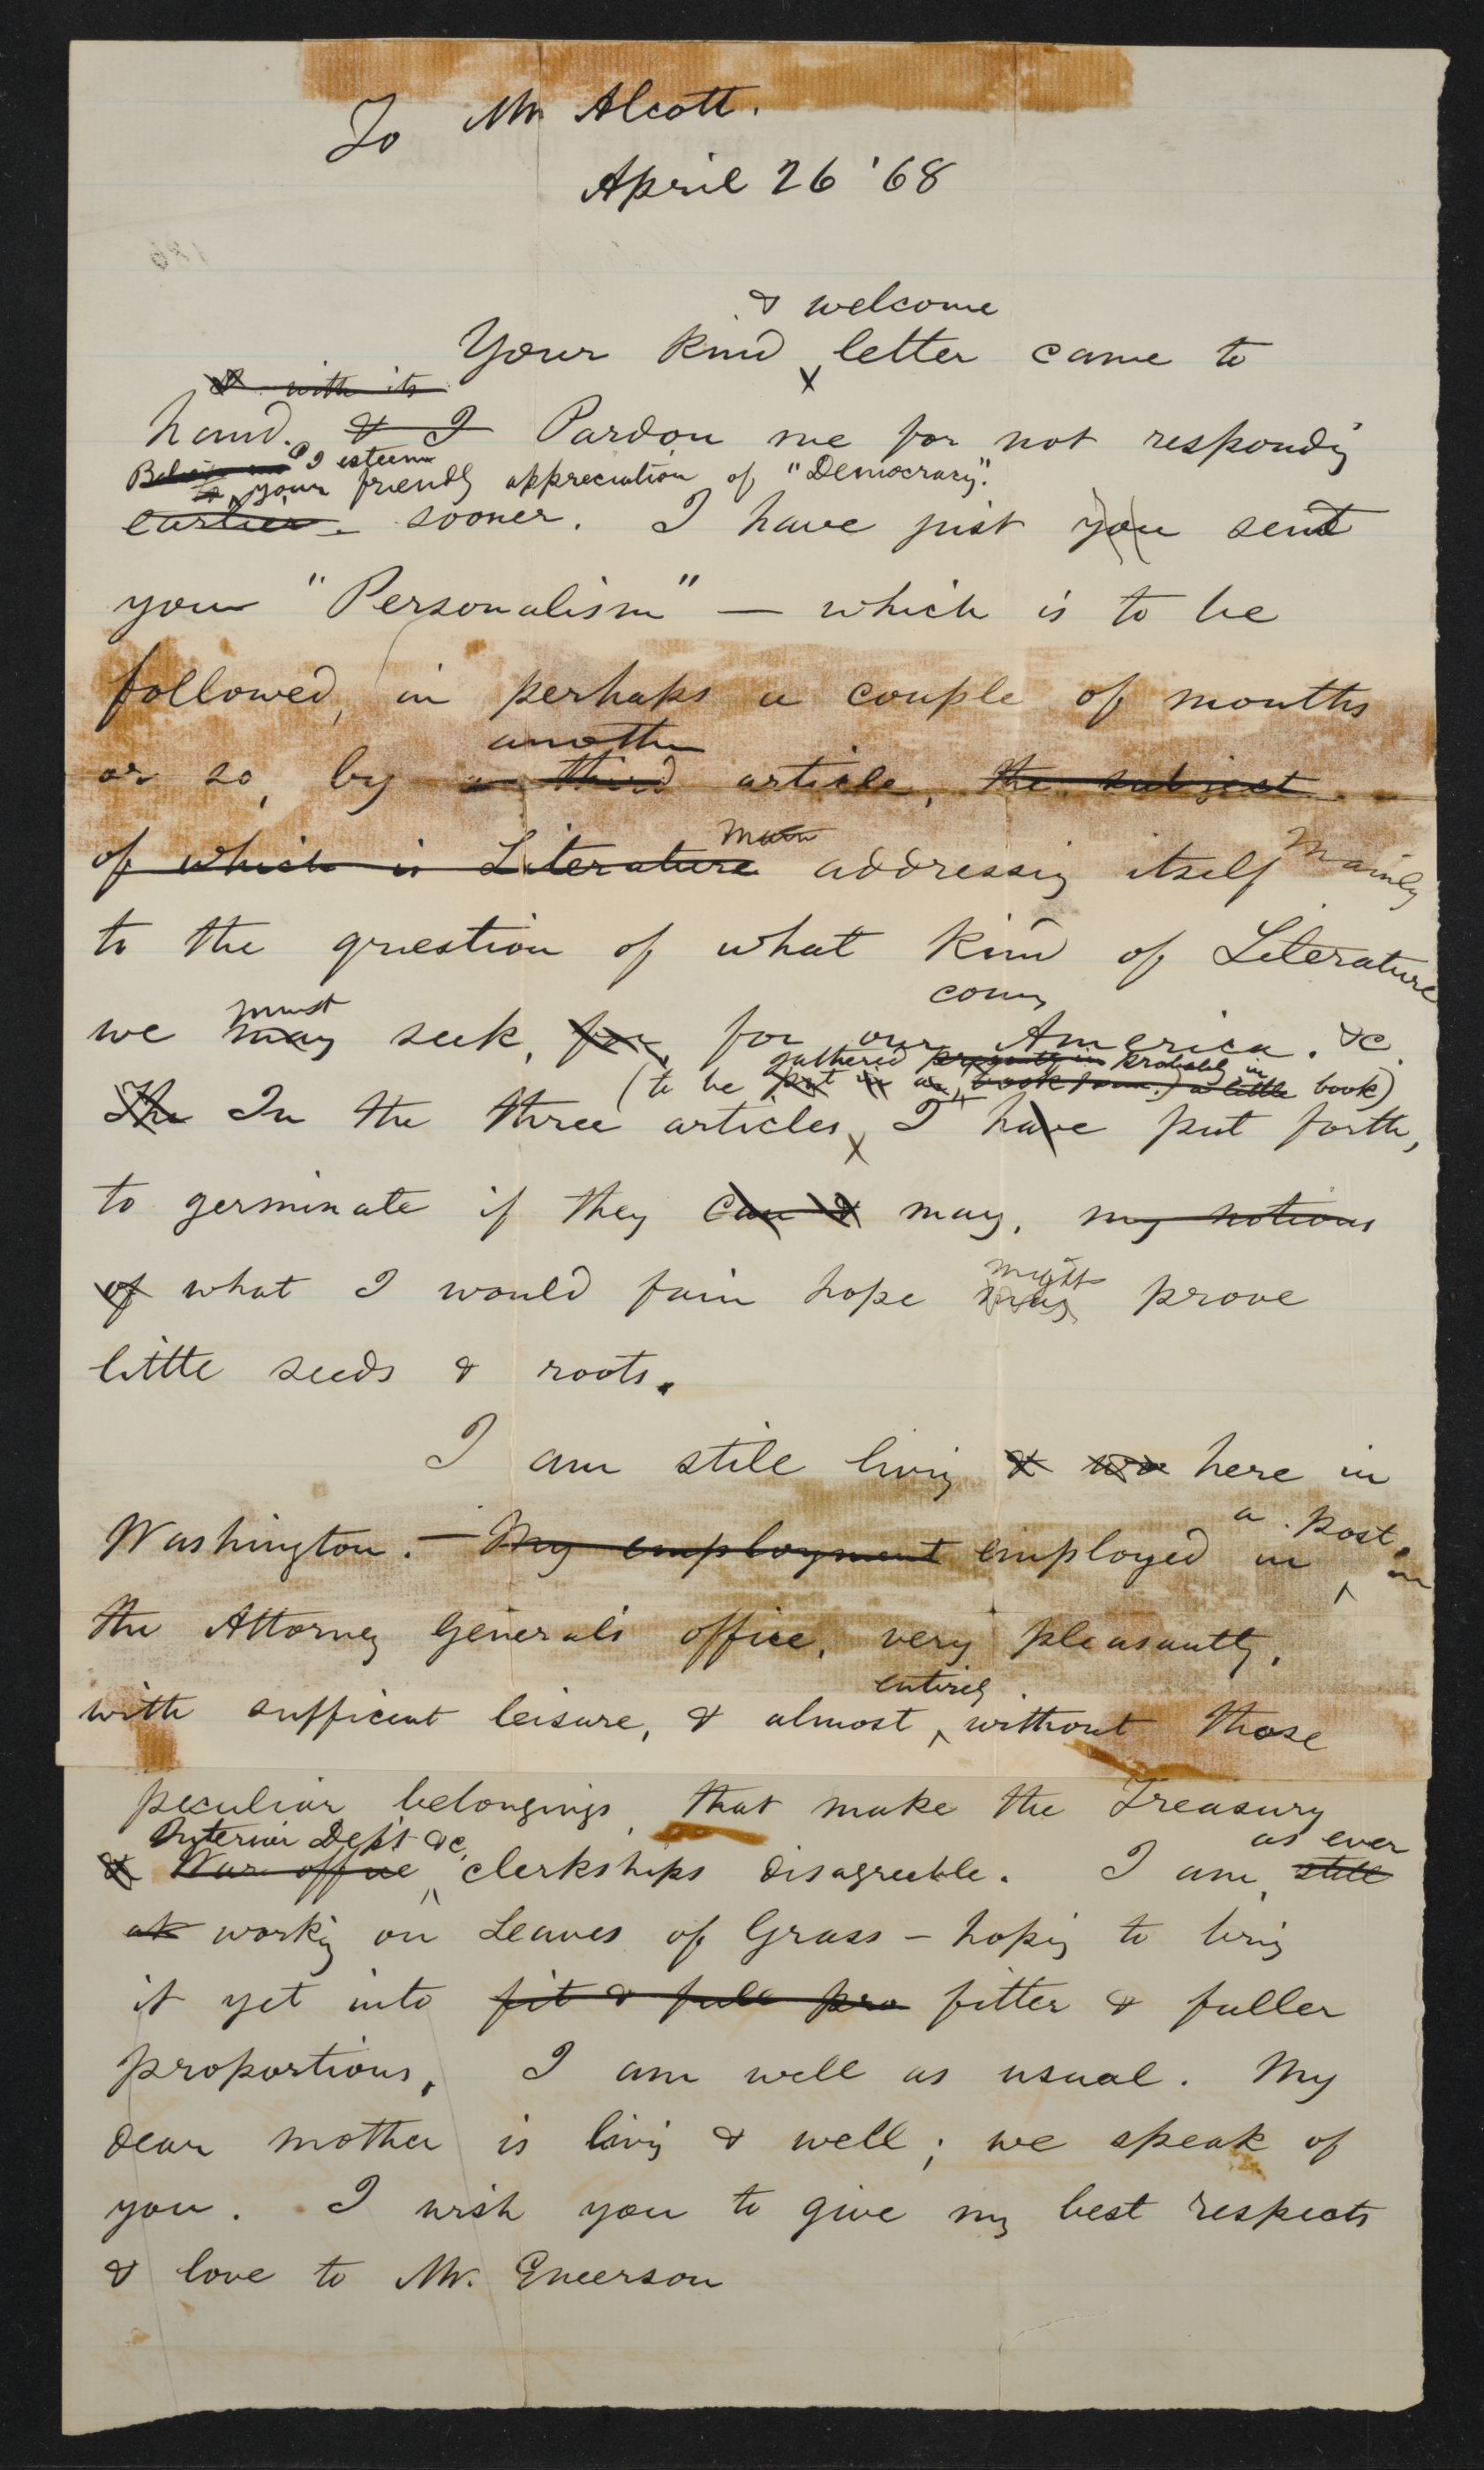 To Mr Alcott.
April 26 '68
& welcome
Your kind letter came to
& with its
hand. & I Pardon me for not respondig
I esteem
your friendly appreciation of "Democracy."
earlier sooner. I have just you sent
you "Personalism" — which is to be
followed, in perhaps a couple of months
another
or so, by a third article, the subject
of which is Literature addressig itself Mainly
to the question of what kind of Literature
must
we may seek, for for our coming America. &c.
gathered presently in probably in
(to be put in a book form.) a little book)
The In the three articles I have put forth,
to germinate if they can & may, my notions
might
of what I would fain hope may prove
little seeds & roots.
I am still livig & here in
a post
Washington. — My employment employed in in
the Attorney Generals office, very pleasantly,
entirely
with sufficient leisure, & almost without those
peculiar belongings, that make the Treasury
Interior Dep't &c. as ever
& War office clerkships disagreeble. I am, still
at workig on Leaves of Grass – hopig to brig
it yet into fit & full pro fitter & fuller
proportions. I am well as usual. My
dear mother is livig & well; we speak of
you. I wish you to give my best respects
& love to Mr. Emerson